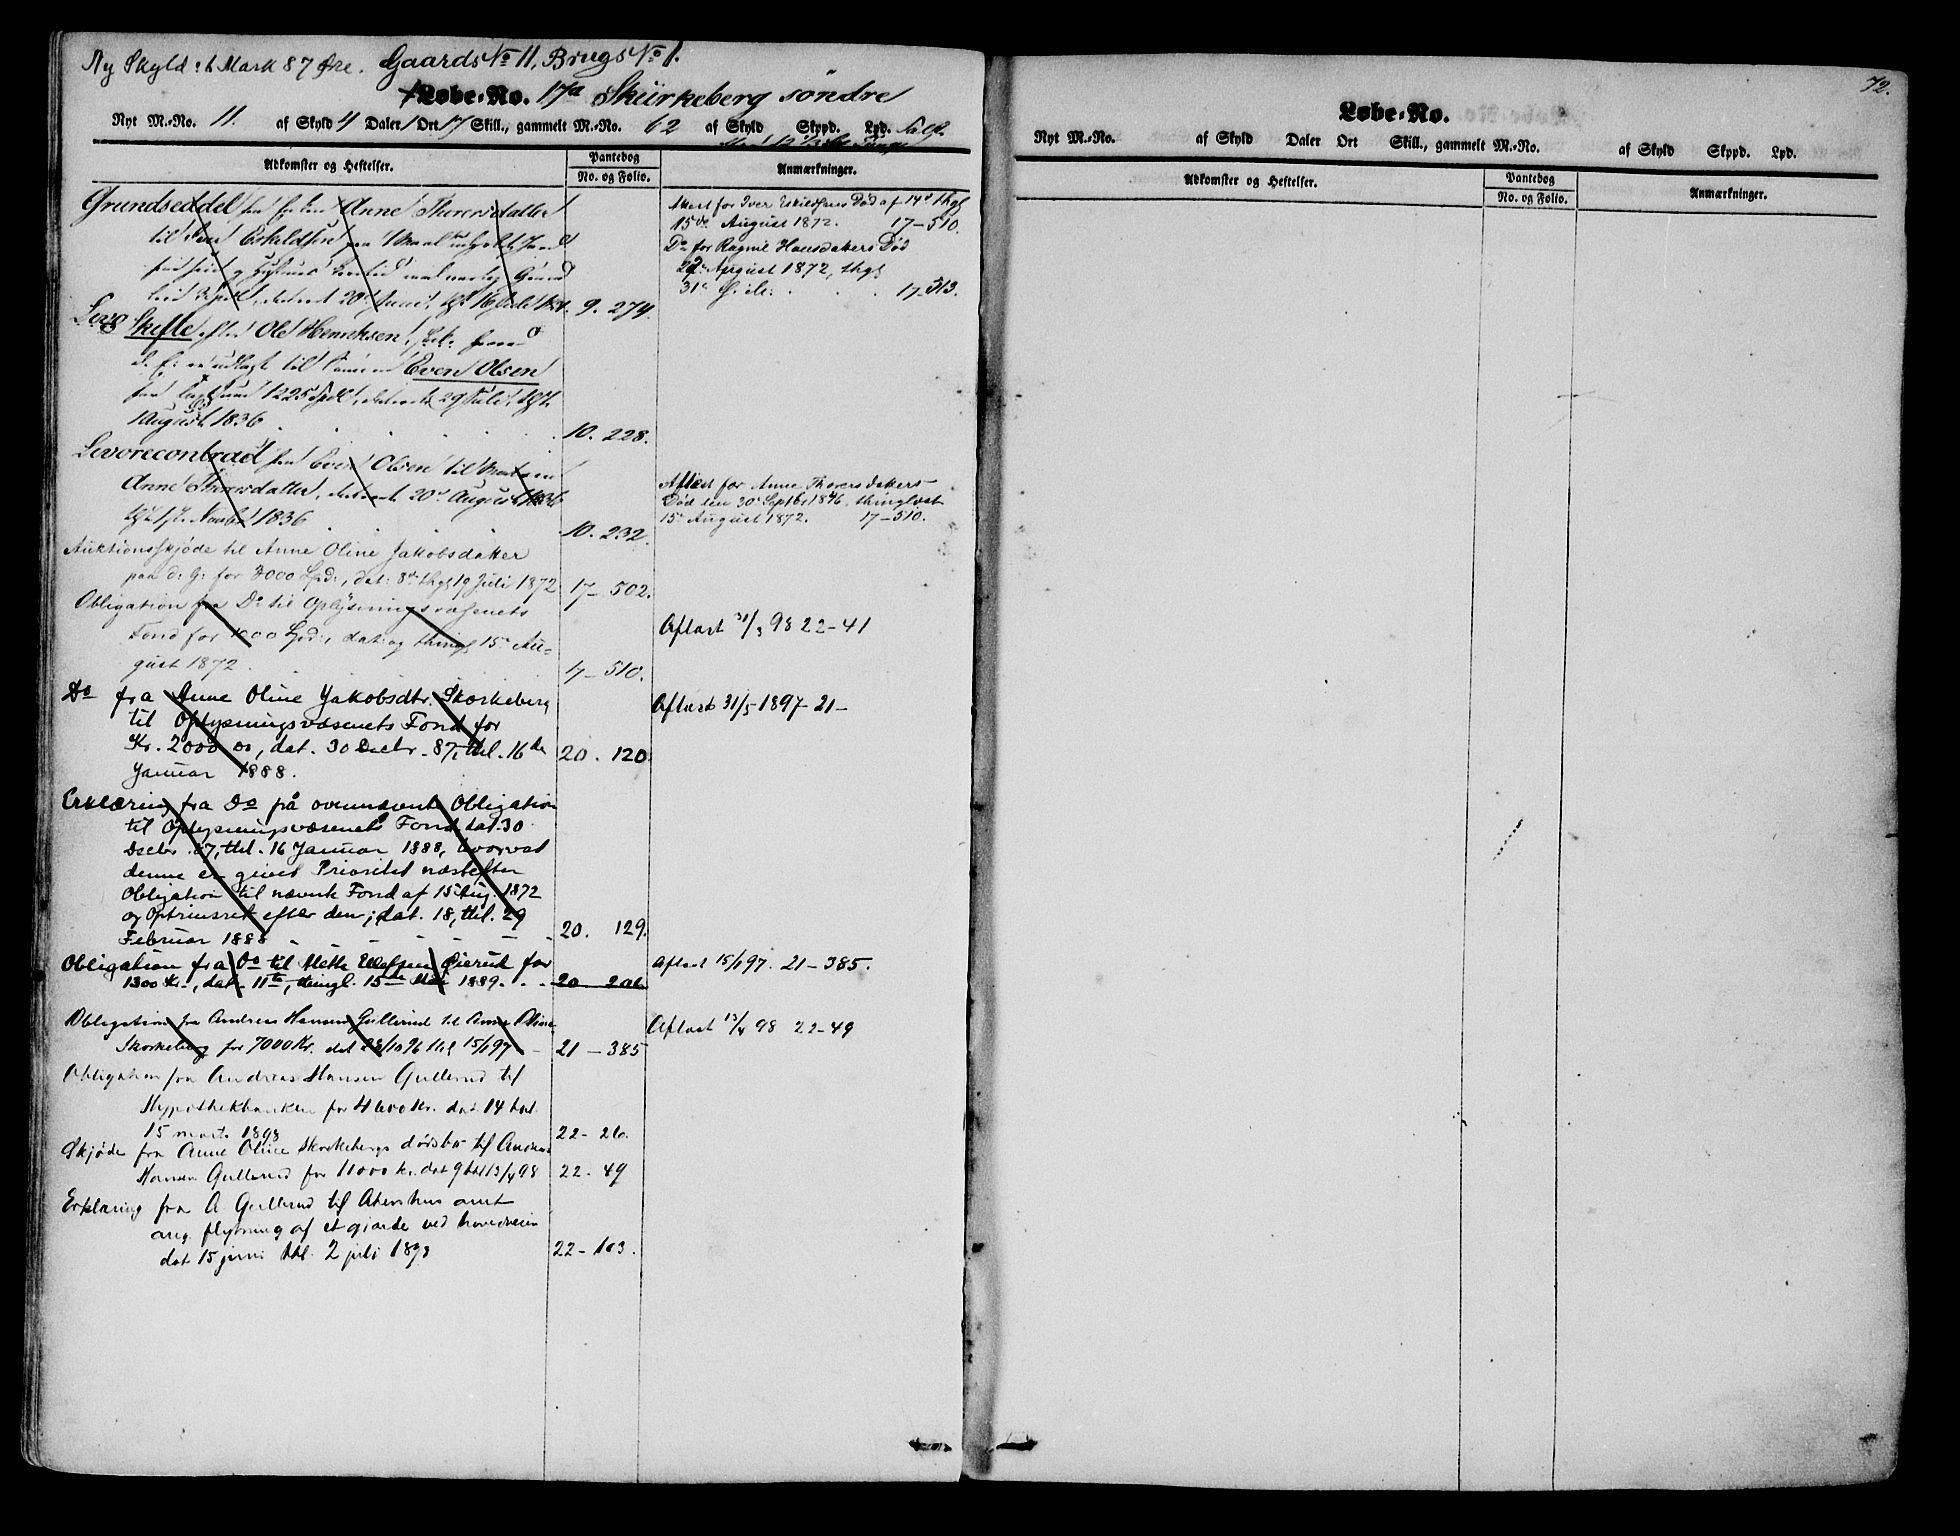 Ny Skyld: 6 Mark 87 Øre. Gaards No 11, Brugs No 1.
Løbe-No. 17a Skürkeberg söndre
Nyt M.-No. 11. af Skyld 4 Daler 1 Ort 17 Skill., gammelt M.-No. 62 af Skyld Skppd. Lpd.
Adkomster og Heftelser.
Pantebog
No. og Folio.
Anmærkninger.
Grundseddel fra Enken Anne Thorersdatter
til Iver Eskildsen paa
dateret 20de 9. 274.
Skifte efter Ole Henriksen,
d. E. er udlagt til Sönnen Even Olsen
for 1225 Spdl, dateret 29 Juli, tgl.
August 1836 10. 228.
Levorecontract fra Even Olsen til Moderen
Anne Thorersdatter, dateret 20de August 1836
Novbr 1836 10. 232.
Auktionsskjøde til Anne Oline Jakobsdatter
paa d: G: for 3000 Spd:, dat: 8de thgl 19 Juli 1872 17- 502.
Obligation fra Do til Oplysningsvæsenets
Fond for 1000 Spd:, dat: og thingl 15de Au-
gust 1872 17- 510.
Do fra Anne Oline Jakobsdtr. Skorkeberg
til Oplysningsvæsenets Fond for
Kr. 2000 00, dat. 30 Decbr. 87, thl. 16de
Januar 1888. 20. 120.
Erklæring fra Do på ovennævnte Obligation
til Oplysningsvæsenets Fond dat. 30
Decbr. 87, thl. 16 Januar 1888, hvorved
denne er givet Prioritet næstefter
Obligation til nævnte Fond af 15 Aug. 1872
og Optrinsret efter den; dat. 18, thl. 29
Februar 1888 20. 129.
Obligation fra Do til Mette Øierud for
1300 Kr., dat. 11te, thingl. 15de Mai 1889. 20 206
Obligation fra Andreas Hansen Gullerud til Anne Oline
Skorkeberg for 7000 Kr. dat 28/10 96 thl 15/1 97 21 - 385
Obligation fra Andreas Hansen Gullerud til
Hypothekbanken for 4600 Kr. dat. 14 thl.
15 marts 1898 22- 26.
Skjøde fra Anne Oline Skorkebergs dødsbo til Andreas
Hansen Gullerud for 11000 kr. dat 9 thl 13/4 98 22. 49
Erklæring fra A. Gullerud til Akershus amt
ang. flytning af et gjærde ved hovedveien
dat 15 juni thl. 2 juli 1898 22- 103.
Aflæst for Iver Eskildsens Død af 14de thgl
15de August 1872. 17-510.
Do for Ragnil Hansdatters Død
22de August 1872, thgl
31te 17-513.
Aflæst for Anne Thorersdatters
Død den 30te Septbr 1846, thinglæst
15de August 1872. 17-510.
Aflæst 31/3 98 22-41
Aflæst 31/5 1897 21-
Aflæst 15/1 97. 21-385.
Aflæst 13/4 98 22-49
72.
Løbe-No.
Nyt M.-No. af Skyld Daler Ort Skill., gammelt M.-No. af Skyld Skppd. Lpd.
Adkomster og Heftelser.
Pantebog
No. og Folio.
Anmærkninger.